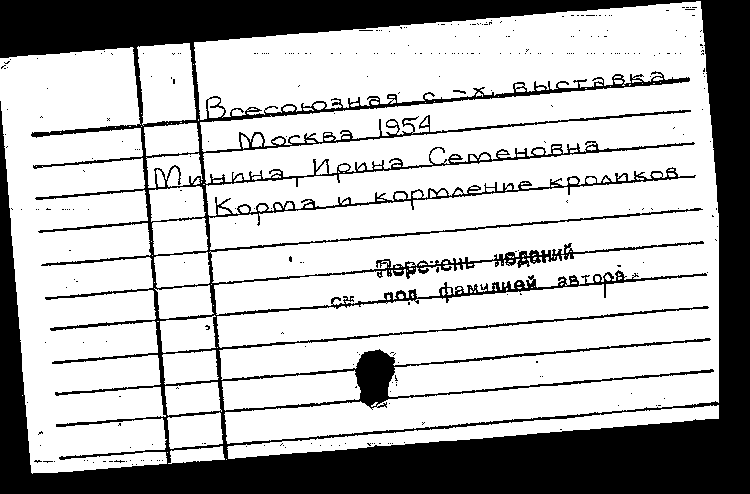 Всесоюзная с.-х. выставка.
Москва 1954
Минина, Ирина Семеновна.
Корма и кормление кроликов
Перечень изданий
см. под фамилией автора.